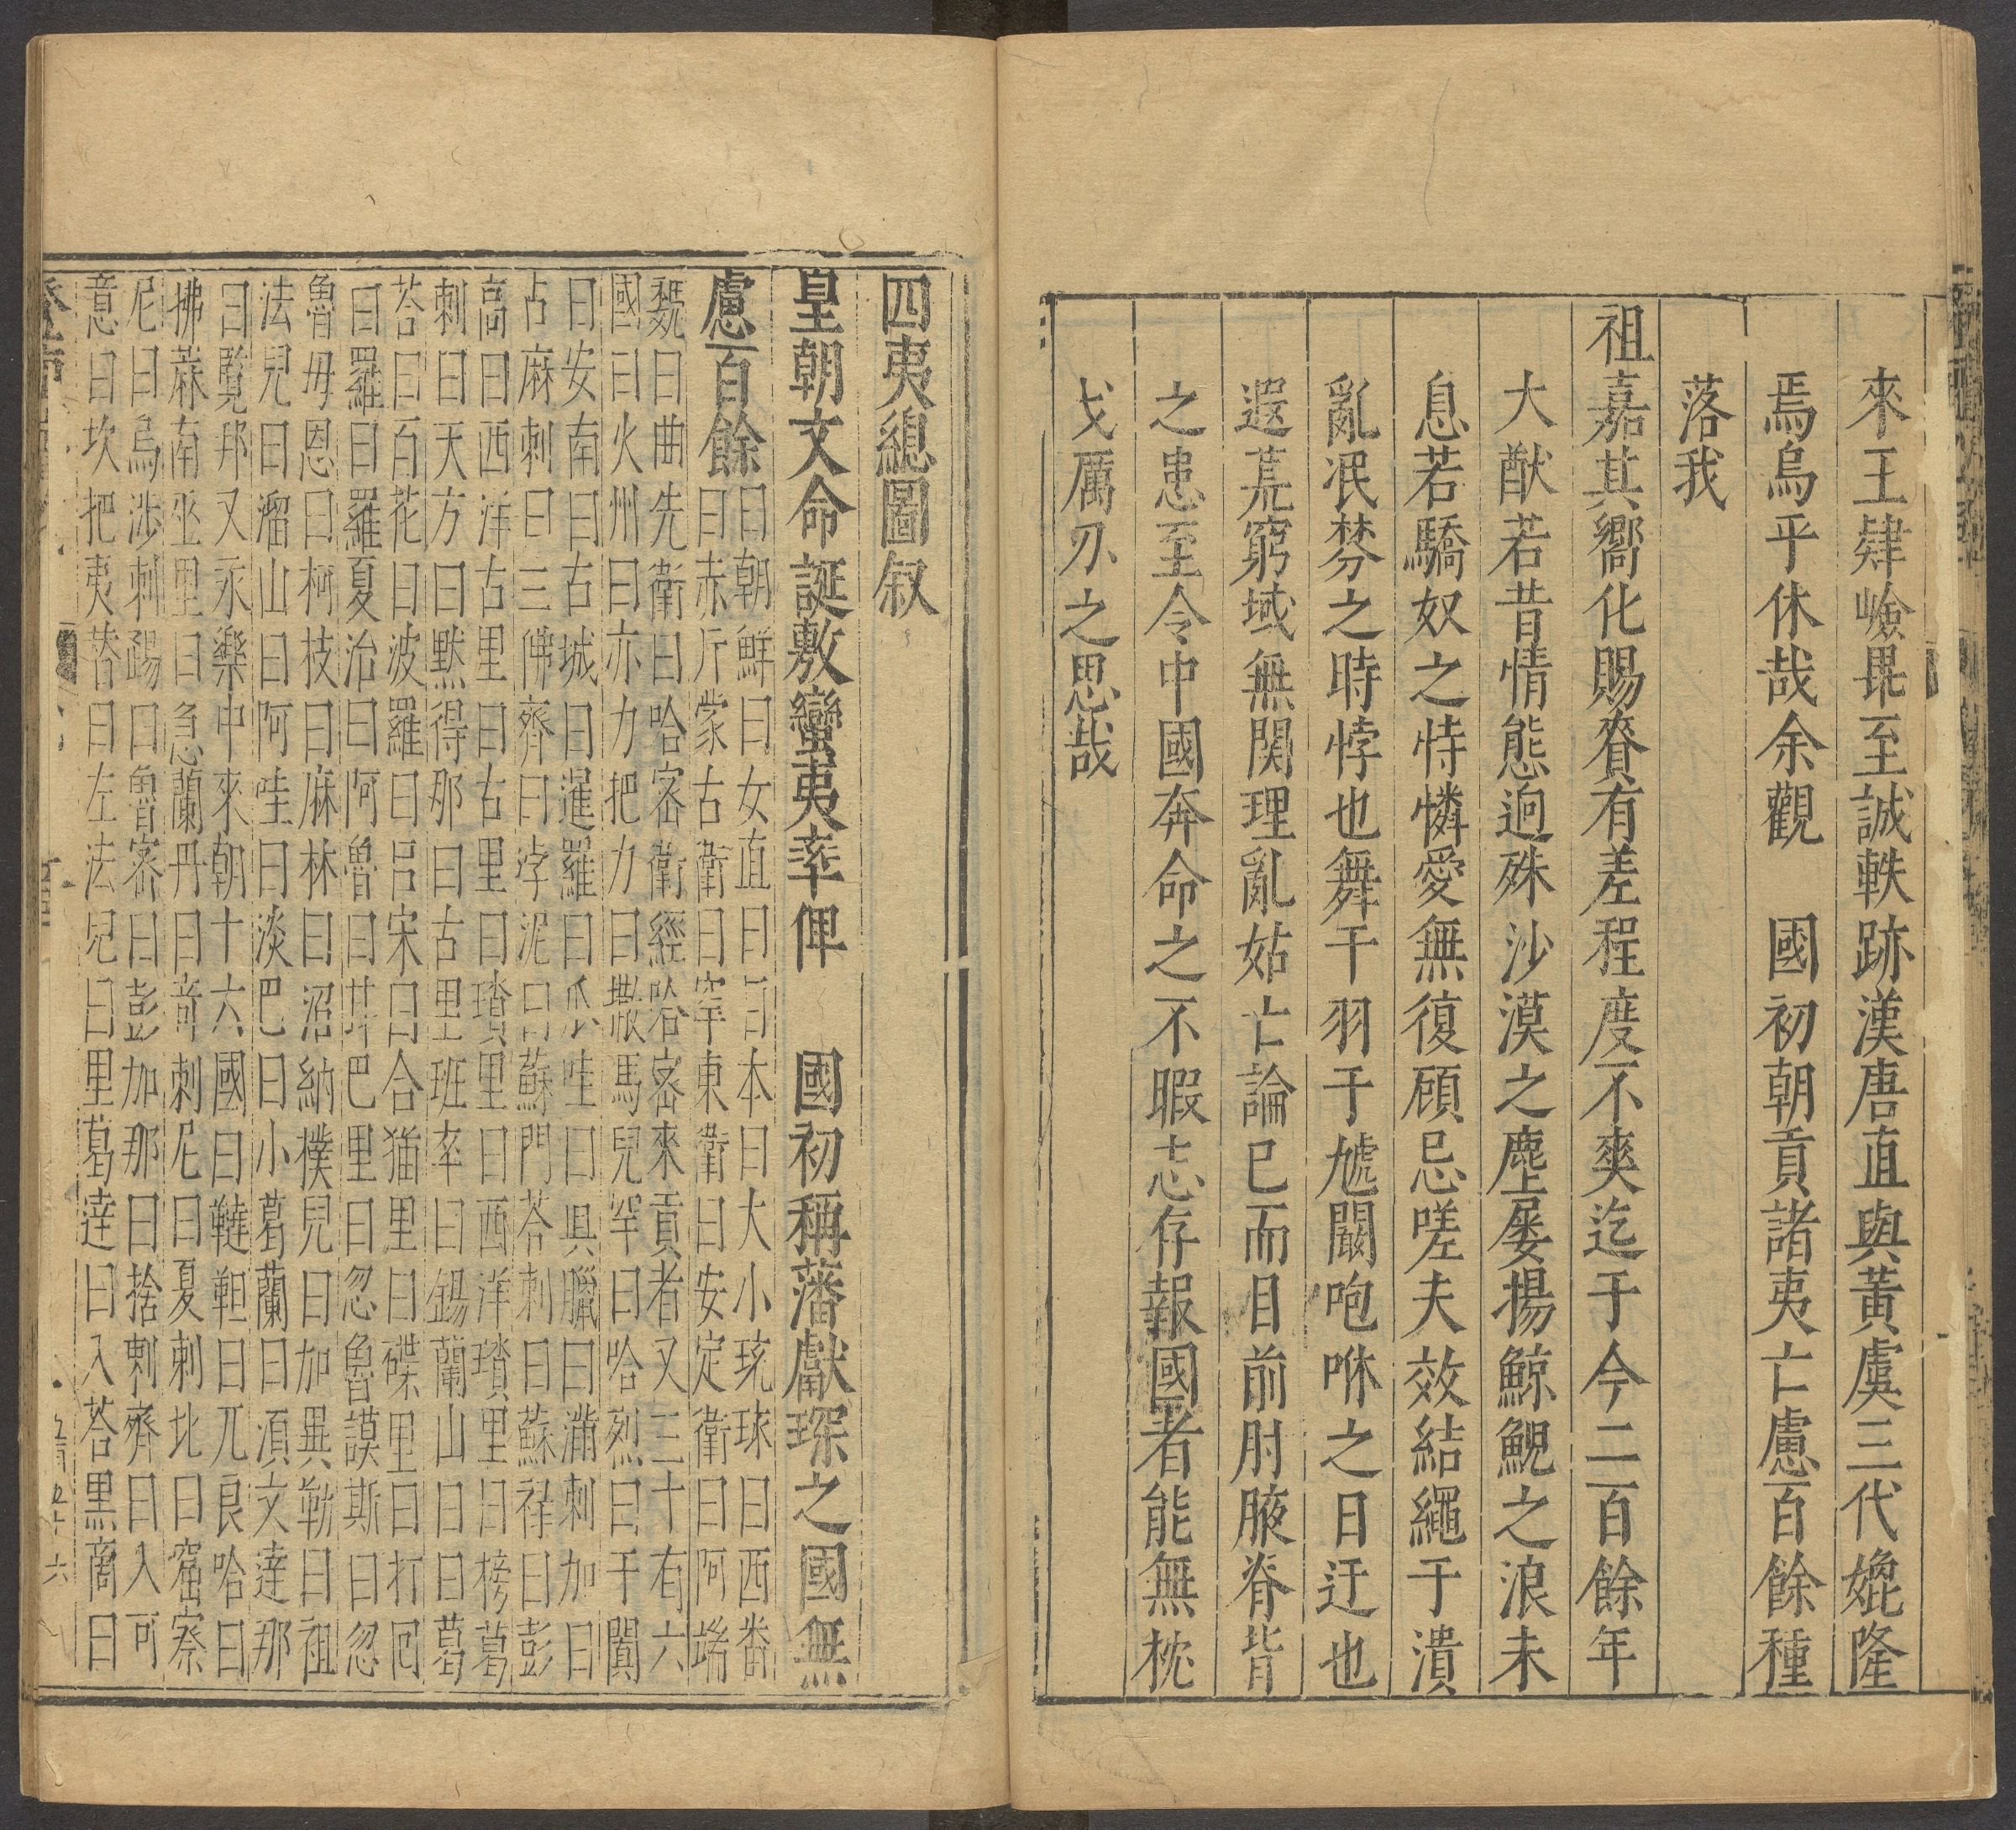 來王肄嶮畢至誠軼跡漢唐直與黃虞三代媲隆
焉烏乎休哉余觀　國初朝貢諸夷亡慮百餘種
落我
祖嘉其嚮化賜賚有差程度不爽迄于今二百餘年
大猷若昔情態逈殊沙漠之塵屡揚鯨鯢之浪未
息若驕奴之恃憐愛無復顧忌嗟夫效結繩于潰
亂泯棼之時悖也舞干羽于虓闞咆咻之日迂也
遐荒窮域無関理亂姑亡論已而目前肘腋脊背
之患至令中國奔命之不暇志存報國者能無枕
戈厲刃之思哉
四夷總圖叙
皇朝文命誕敷蠻夷率俾　國初稱藩獻琛之國無
慮百餘
曰朝鮮曰女直曰日本曰大小琉球曰西番
曰赤斤蒙古衛曰罕東衛曰安定衛曰阿端
衛曰曲先衛曰哈密衛經哈密來貢者又三十有六
國曰火州曰亦力把力曰撒馬兒罕曰哈烈曰于闐
曰安南曰古城曰暹羅曰爪哇曰真臘曰滿剌加曰
占麻剌曰三佛齊曰浡泥曰蘇門荅剌曰蘇祿曰彭
高曰西洋古里曰古里曰瑣里曰西洋瑣里曰榜葛
剌曰天方曰默得那曰古里班卒曰錫蘭山曰曰葛
荅曰百花曰波羅曰呂宋曰合猫里曰碟里曰打囘
曰羅曰羅夏治曰阿魯曰甘巴里曰忽魯謨斯曰忽
魯毋恩曰柯枝曰麻林曰沼納樸兒曰加異勒曰祖
法兒曰溜山曰阿哇曰淡巴曰小葛蘭曰須文達那
曰覽邦又永樂中來朝十六國曰韃靼曰兀良哈曰
拂菻南巫里曰急蘭丹曰奇剌尼曰夏剌北曰窟察
尼曰烏涉剌踢曰魯密曰彭加那曰捨剌齊曰入可
意曰坎把夷替曰左法兒曰里葛達曰入荅黑商曰